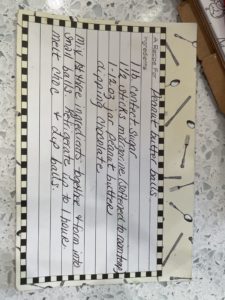 Recipe for Peanut butter balls
Ingredients
1 lb confect sugar
1 1/2 sticks margarine (softened to room temp
1-12oz jar peanut butter
dipping chocolate
Mix 1st three ingredients together & form into
small balls. Refrigerate up to 1 hour.
melt choc & dip balls.